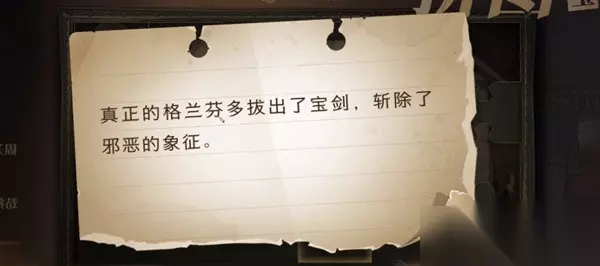 真正的格兰芬多拔出了宝剑，斩除了
邪恶的象征。
挑战